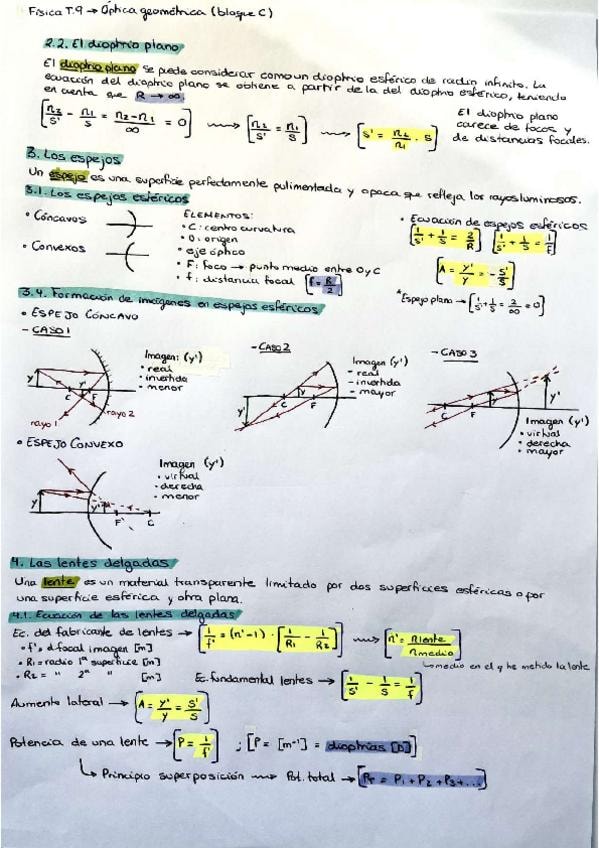 Física T.9 → Óptica geométrica (bloque C)
2.2. El dioptrio plano
El dioptrio plano se puede considerar como un dioptrio esférico de radio infinito. La
ecuación del dioptrio plano se obtiene a partir de la del dioptrio esférico, teniendo
en cuenta que R → ∞
[n2/s' - n1/s = n2-n1/∞ = 0] ⟿ [n2/s' = n1/s] ⟿ [s' = n2/n1 · s]
El dioptrio plano
carece de focos y
de distancias focales.
3. Los espejos
Un espejo es una superficie perfectamente pulimentada y opaca que refleja los rayos luminosos.
3.1. Los espejos esféricos
• Cóncavos
• Convexos
ELEMENTOS:
• C: centro curvatura
• O: origen
• eje óptico
• F: foco → punto medio entre O y C
• f: distancia focal [f = R/2]
• Ecuación de espejos esféricos
[1/s' + 1/s = 2/R] [1/s' + 1/s = 1/f]
[A = y'/y = - s'/s]
*Espejo plano → [1/s' + 1/s = 2/∞ = 0]
3.4. Formación de imágenes en espejos esféricos
• ESPEJO CÓNCAVO
- CASO 1
y
C
F
rayo 1
rayo 2
Imagen: (y')
• real
• invertida
• menor
- CASO 2
y'
C
F
Imagen (y')
- real
- invertida
- mayor
- CASO 3
C
F
y'
Imagen (y')
• virtual
• derecha
• mayor
• ESPEJO CONVEXO
y
y'
F'
C
Imagen (y')
• virtual
• derecha
• menor
4. Las lentes delgadas
Una lente es un material transparente limitado por dos superficies esféricas o por
una superficie esférica y otra plana.
4.1. Ecuación de las lentes delgadas
Ec. del fabricante de lentes → [1/f' = (n'-1) · [1/R1 - 1/R2]] ⟿ [n' = nlente/nmedio]
↳ medio en el q he metido la lente
• f' = d focal imagen [m]
• R1 = radio 1ª superficie [m]
• R2 = " 2ª " [m]
Ec. fundamental lentes → [1/s' - 1/s = 1/f]
Aumento lateral → [A = y'/y = s'/s]
Potencia de una lente → [P = 1/f'] ; [P = [m-1] = dioptrías [D]]
↳ Principio superposición ⟿ Pot. total → [PT = P1 + P2 + P3 + ...]